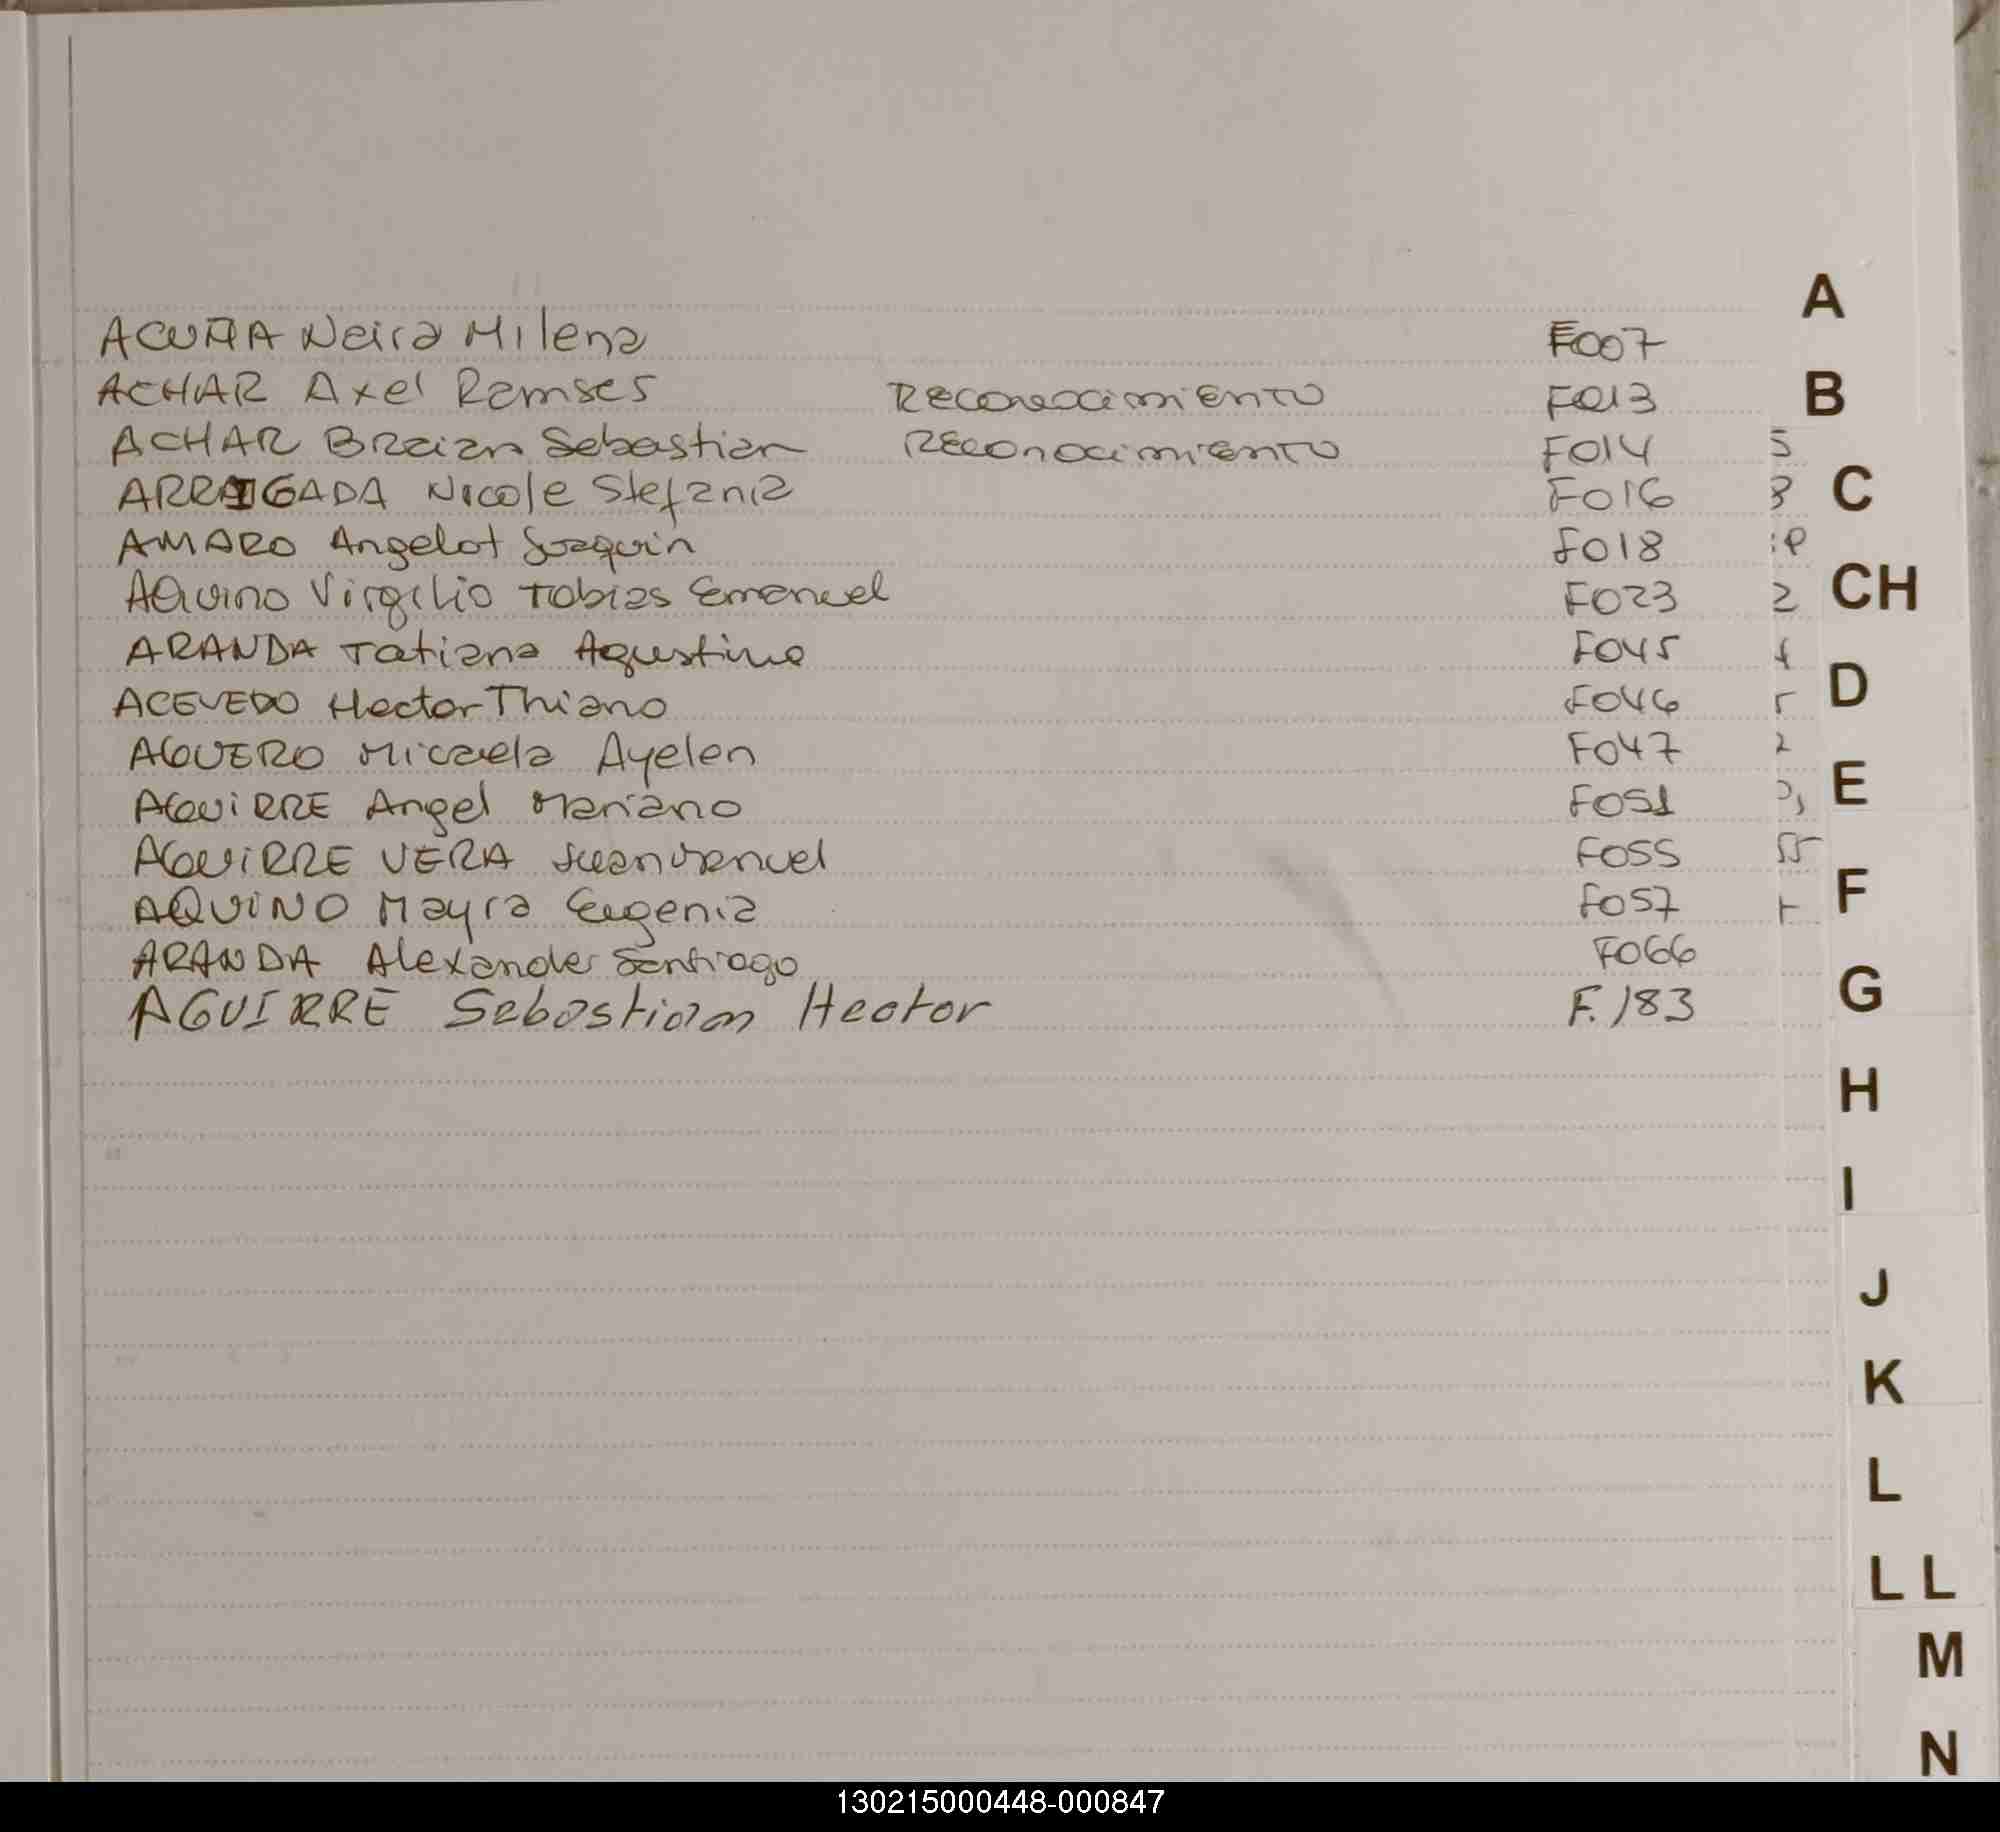 ACUÑA Neira Milena F007
ACHAR Axel Ramses Reconocimiento F013
ACHAR Braian Sebastian Reconocimiento F014
ARRAIGADA Nicole Stefania F016
AMARO Angelot Joaquin F018
AQuino Virgilio Tobias Emanuel F023
ARANDA Tatiana Agustina F045
ACEVEDO Hector Thiano F046
AGUERO Micaela Ayelen F047
AGUIRRE Angel Mariano F051
AGUIRRE VERA Juan Manuel F055
AQUINO Mayra Eugenia F057
ARANDA Alexander Santiago F066
AGUIRRE Sebastian Hector F.183
A
B
C
CH
D
E
F
G
H
I
J
K
L
LL
M
N
130215000448-000847